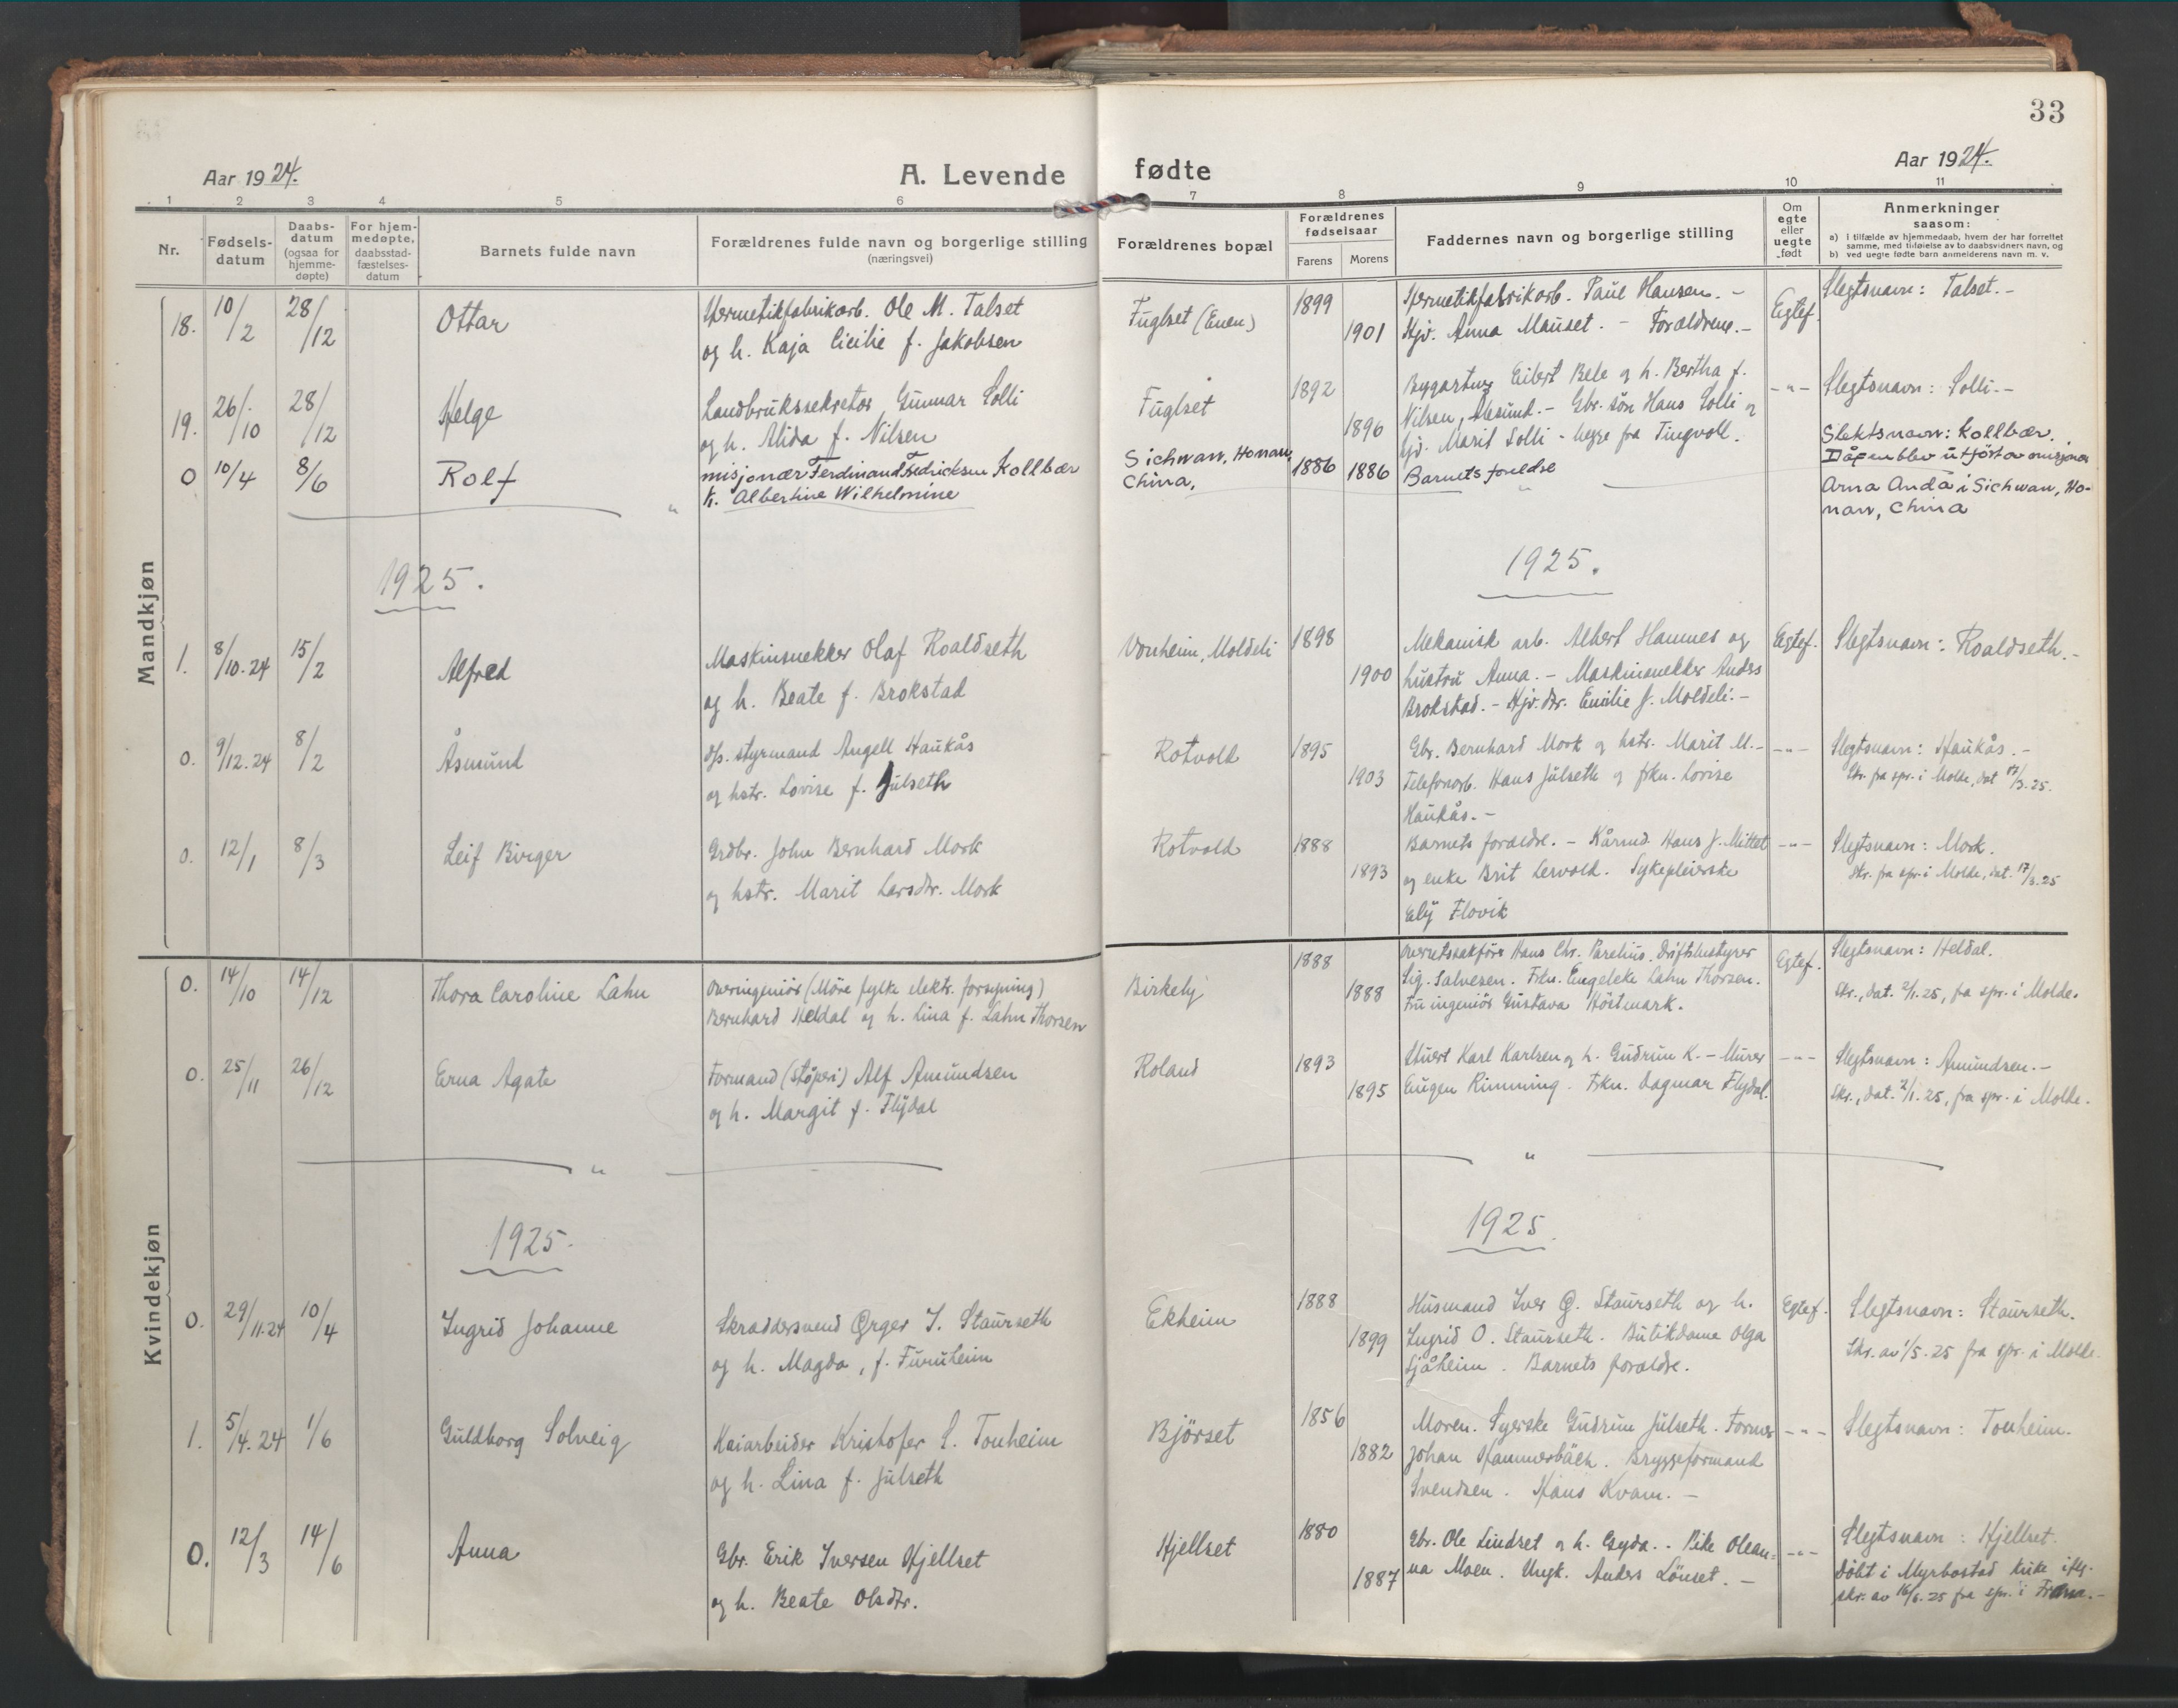 33
Aar 1924.
A. Levende fødte
Aar 1924.
1 2 3 4 5 6 7 8 9 10 11
Nr.
Fødsels-
datum
Daabs-
datum
(ogsaa for
hjemme-
døpte)
For hjem-
medøpte,
daabsstad-
fæstelses-
datum
Barnets fulde navn
Forældrenes fulde navn og borgerlige stilling
(næringsvei)
Forældrenes bopæl
Forældrenes
fødselsaar
Farens Morens
Faddernes navn og borgerlige stilling
Om
egte
eller
uegte
født
Anmerkninger
saasom:
a) I tilfælde av hjemmedaab, hvem der har forrettet
samme, med tilføielse av to daabsvidners navn, og
b) ved uegte fødte barn anmelderens navn m. v.
Mandkjøn
18. 10/2 28/12 Ottar
Hermetikfabrikarb. Ole M. Talset
og h. Kaja Cicilie f. Jakobsen
Fuglset (Enen)
1899
1901
Hermetikfabrikarb. Paul Hansen. -
Hjv. Anna Mauset. - Forældrene. -
Egtef.
Slegtsnavn: Talset. -
19. 26/10 28/12 Helge
Landbrukssekretær Gunnar Solli
og h. Alida f. Nilsen
Fuglset
1892
1896
Eilert Bele og h. Bertha f.
Nilsen, Ålesund. - Gbr. søn Hans Solli og
Marit Solli - begge fra Tingvoll.
- " -
Slegtsnavn: Solli. -
0 10/4 8/6 Rolf
misjonær Ferdinand Fredriksen Kollbær
h. Albertine Wilhelmine
Sichwan, Honan,
China,
1886 1886
Barnets foreldre
Slektsnavn: Kollbær.
Dåpen blev utført av misjonær
Arna Anda i Sichwan, Ho-
nan, China
1925.
1925.
1. 8/10.24 15/2 Alfred
Maskinsnekker Olaf Roaldseth
og h. Beate f. Brokstad
Vonheim, Moldeli
1898
1900
Mekanisk arb. Albert Hamnes og
hustru Anna. - Maskinsnekker Anders
Brokstad. - Hjv. dtr. Emilie J. Moldeli. -
Egtef.
Slegtsnavn: Roaldseth. -
0. 9/12.24 8/2 Åsmund
d/s. styrmand Angell Haukås
og hstr. Lovise f. Julseth
Rotvold
1895
1903
Gbr. Bernhard Mork og hstr. Marit M. -
Telefonarb. Hans Julseth og frkn. Lovise
Haukås. -
- " -
Slegtsnavn: Haukås. -
Skr. fra spr. i Molde, dat 17/3.25.
0. 12/1 8/3 Leif Birger
Grdbr. John Bernhard Mork
og hstr. Marit Larsdtr. Mork
Rotvold
1888
1893
Barnets forældre. - Kårmd. Hans J. Mittet
og enke Brit Lervold. Sykepleierske
Elly Flovik
- " -
Slegtsnavn: Mork.
Skr. fra spr. i Molde, dat. 17/3.25
Kvindekjøn
0. 14/10 14/12 Thora Caroline Lahn
Overingeniør (Møre fylke elektr. forsyning)
Bernhard Heldal og h. Lina f. Lahn Thorsen
Birkely
1888
1888
Overretssakfører Hans Chr. Parelius. Driftsbestyrer
Sig. Salvesen. Frkn. Engeleke Lahn Thorsen.
Fru ingeniør Gustava Høstmark.
Egtef.
Slegtsnavn: Heldal.
Skr., dat. 2/1.25, fra spr. i Molde.
0. 25/11 26/12 Erna Agate
Formand (støperi) Alf Amundsen
og h. Margit f. Flydal
Roland
1893
1895
Stuert Karl Karlsen og h. Gudrun K. - Murer
Eugen Rimming. Frkn. Dagmar Flydal.
- " -
Slegtsnavn: Amundsen. -
Skr., dat. 2/1.25, fra spr. i Molde.
1925.
1925.
0. 29/11.24 10/4 Ingrid Johanne
Skræddersvend Ørger I. Staurseth
og h. Magda, f. Furuheim
Ekheim
1888
1899
Husmand Iver Ø. Staurseth og h.
Ingrid O. Staurseth. Butikdame Olga
Sjåheim. Barnets forældre.
Egtef.
Slegtsnavn: Staurseth.
Skr. av 1/5.25 fra spr. i Molde.
1. 5/4.24 1/6 Guldborg Solveig
Kaiarbeider Kristofer S. Tonheim
og h. Lina f. Julseth
Bjørset
1856
1882
Moren. Syerske Gudrun Julseth. Former
Johan Hammerbäck. Bryggeformand
Svendsen. Hans Kvam. -
- " -
Slegtsnavn: Tonheim.
0. 12/3 14/6 Anna
Gbr. Erik Iversen Hjellset
og h. Beate Olsdtr.
Hjellset
1880
1887
Gbr. Ole Lindset og h. Gyda. - Pike Olean-
na Moen. Ungk. Anders Lønset. -
- " -
Slegtsnavn: Hjellset.
Døbt i Myrbostad kirke iflg.
skr. av 16/6.25 fra spr. i Fræna. -